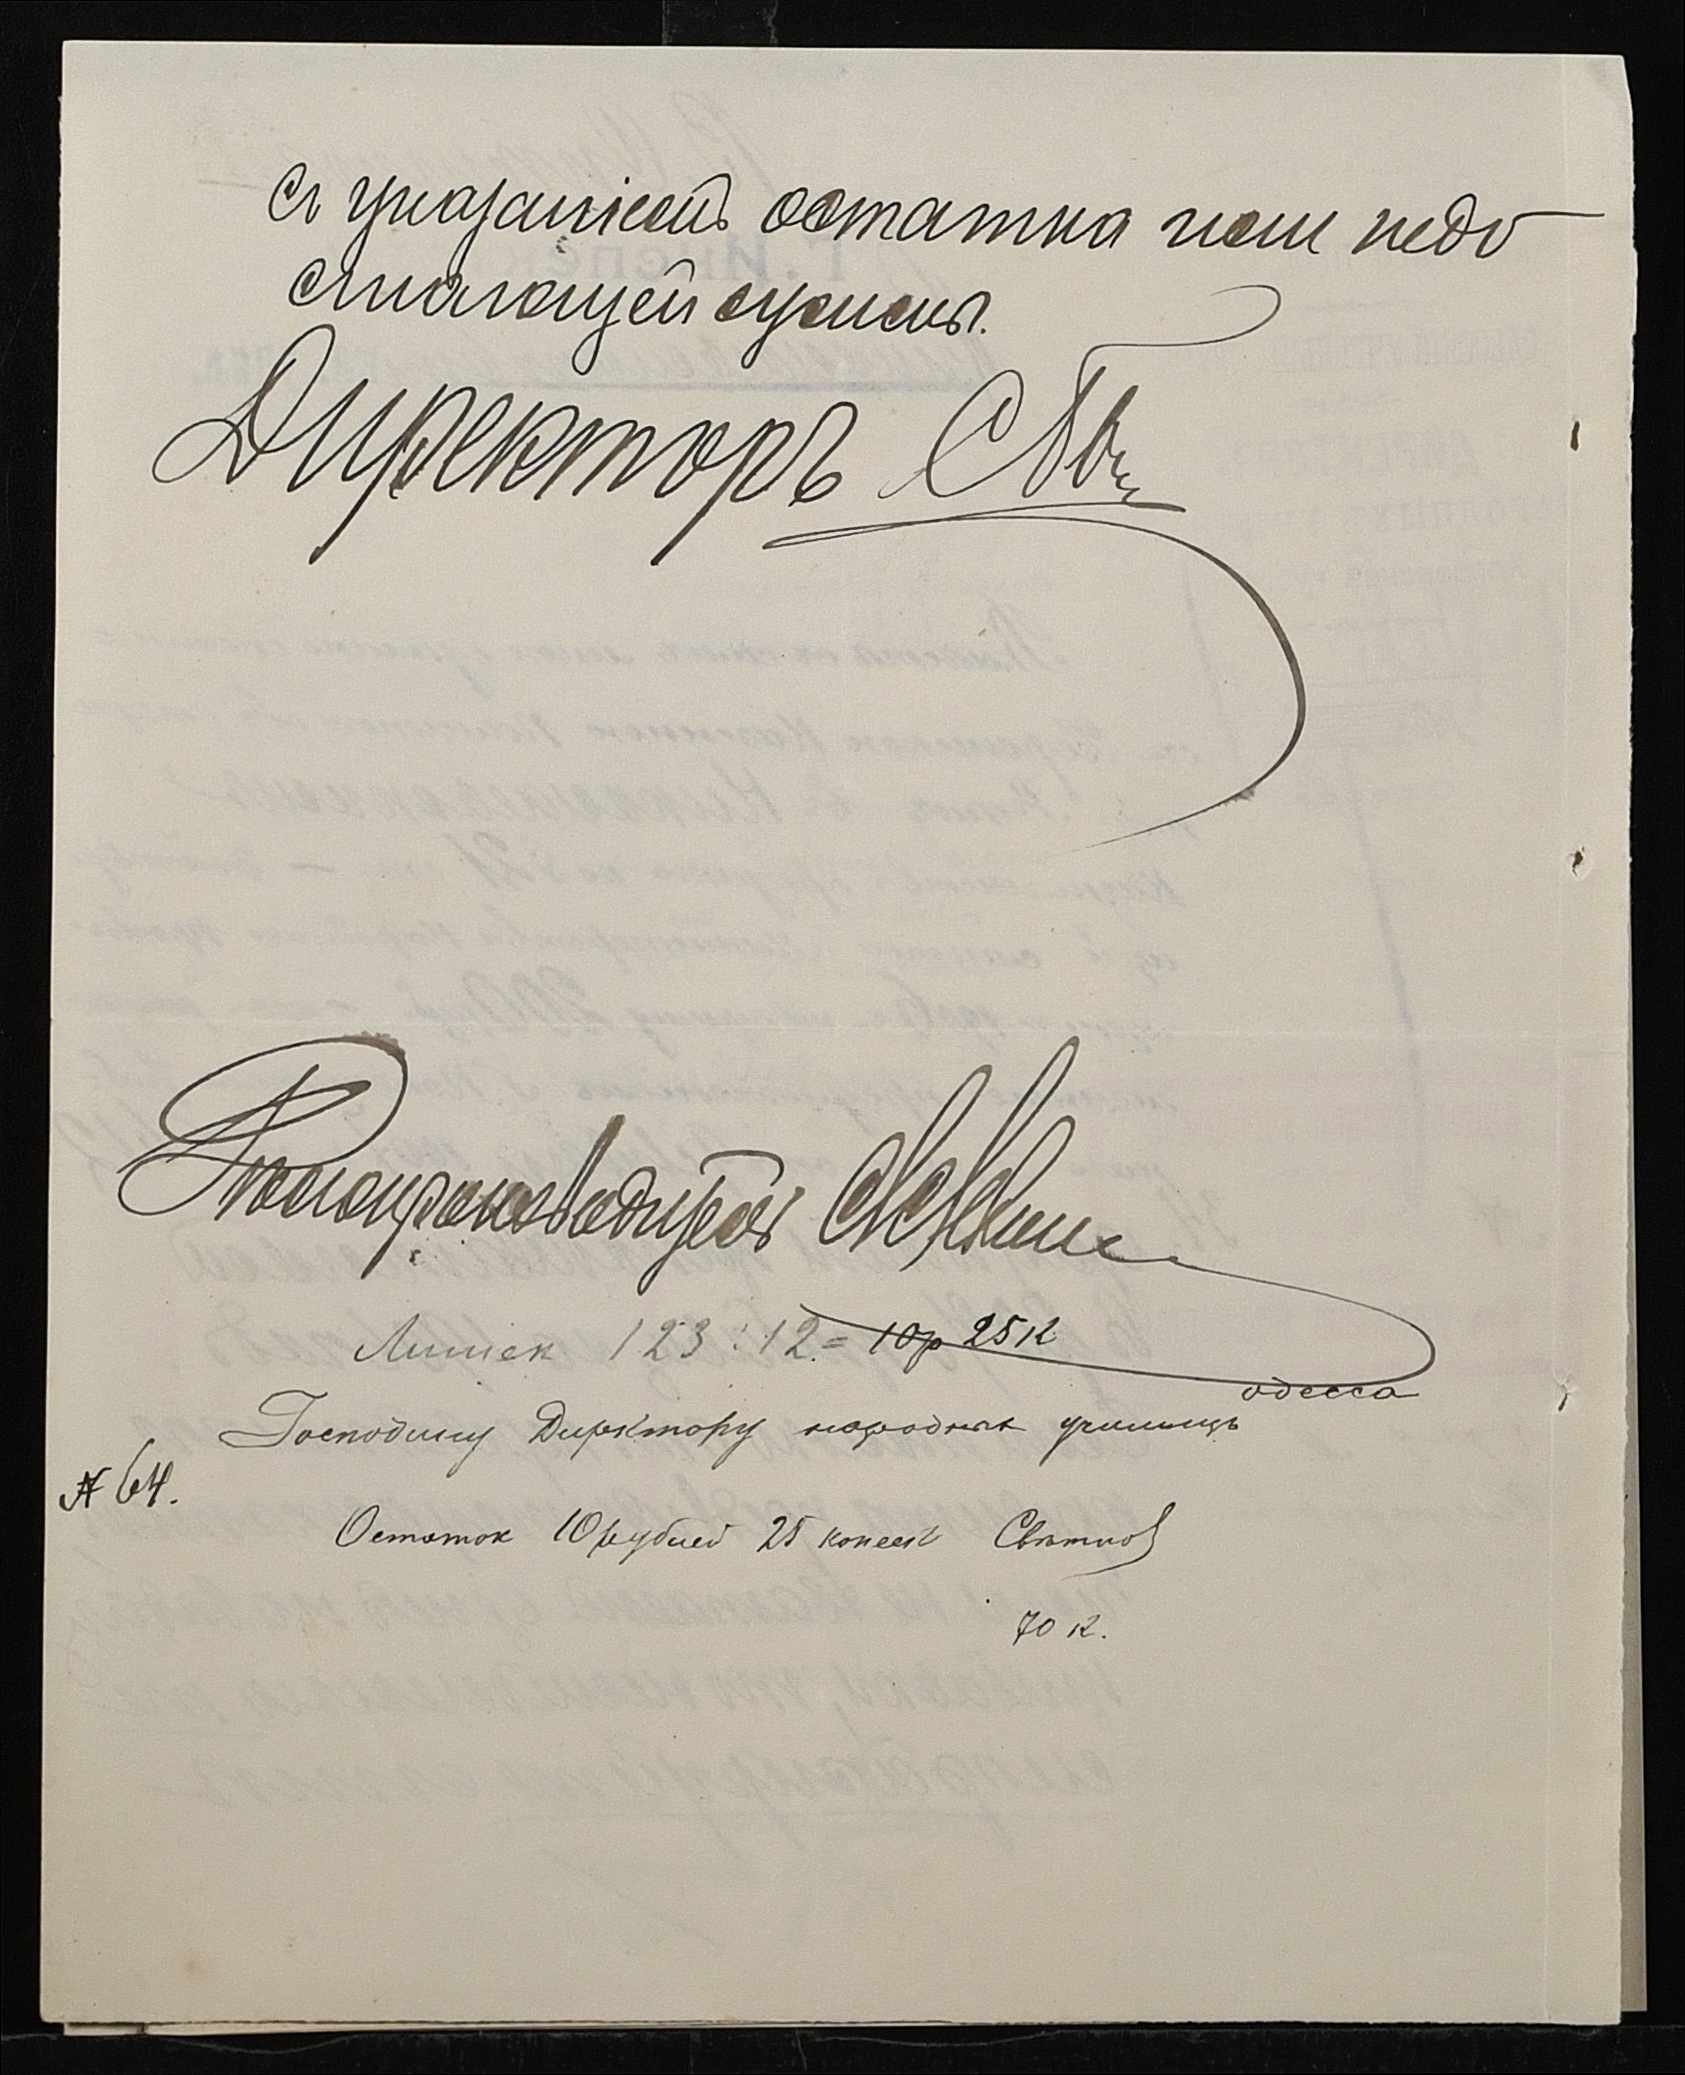 съ указаніемъ остатка или недо
стающей суммы.
Директоръ
Делопроизводитель
Лишек 123 : 12. = 10р 25 к
одесса
Господину Директору народных училищъ
№ 64.
Остаток 10 рублей 25 копеек
70 к.